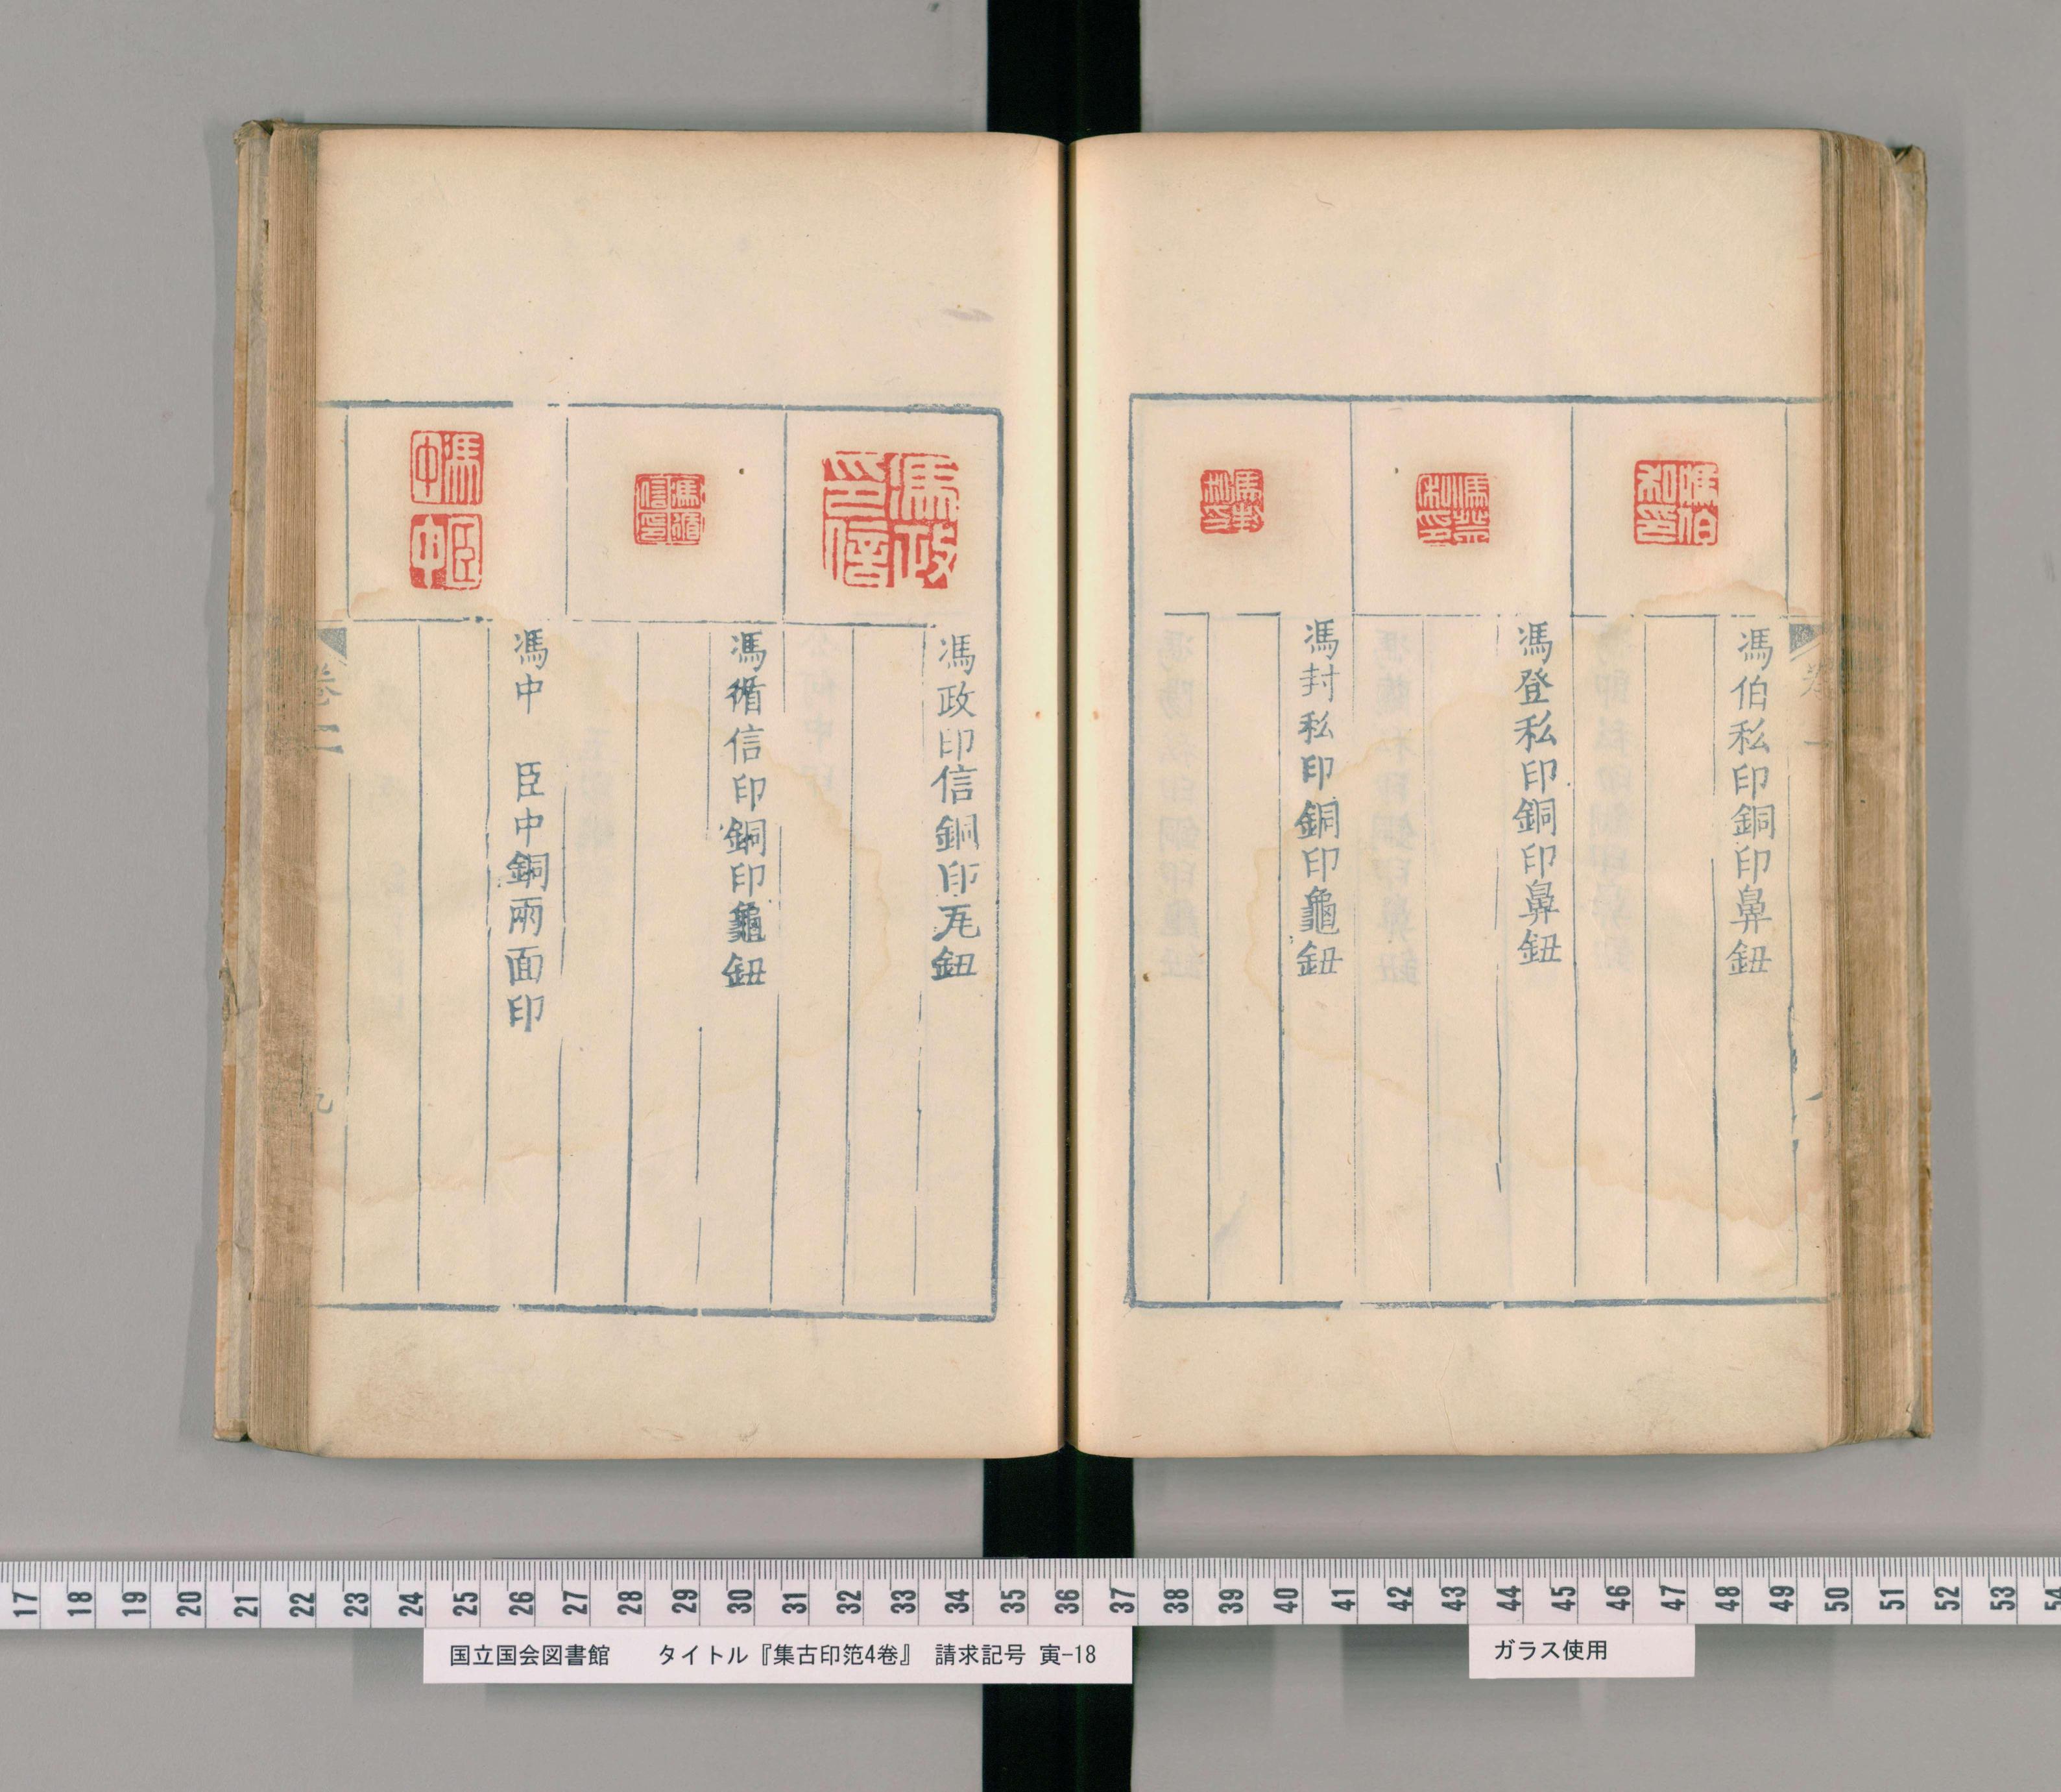 馮伯私印銅印鼻鈕
馮登私印銅印鼻鈕
馮封私印銅印龜鈕
馮政印信銅印瓦鈕
馮循信印銅印龜鈕
馮中　臣中銅兩面印
卷一
馮伯私印
馮登私印
馮封私印
馮政印信
馮循信印
馮中
臣中
17 18 19 20 21 22 23 24 25 26 27 28 29 30 31 32 33 34 35 36 37 38 39 40 41 42 43 44 45 46 47 48 49 50 51 52 53 54
国立国会図書館　タイトル『集古印笵4巻』　請求記号 寅-18
ガラス使用